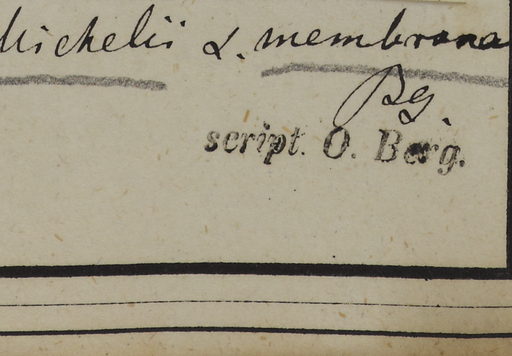 Michelii α. membrana
Bg.
script. O. Berg.